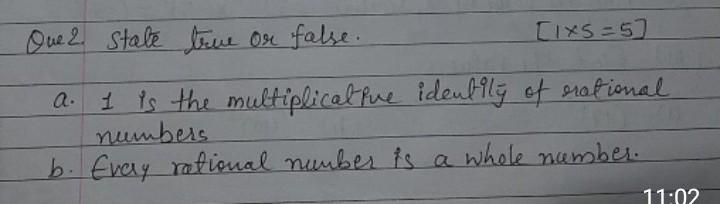 Que 2. State true or false. [1×5=5]
a. 1 is the multiplicative identity of rational
numbers
b. Every rational number is a whole number.
11:02